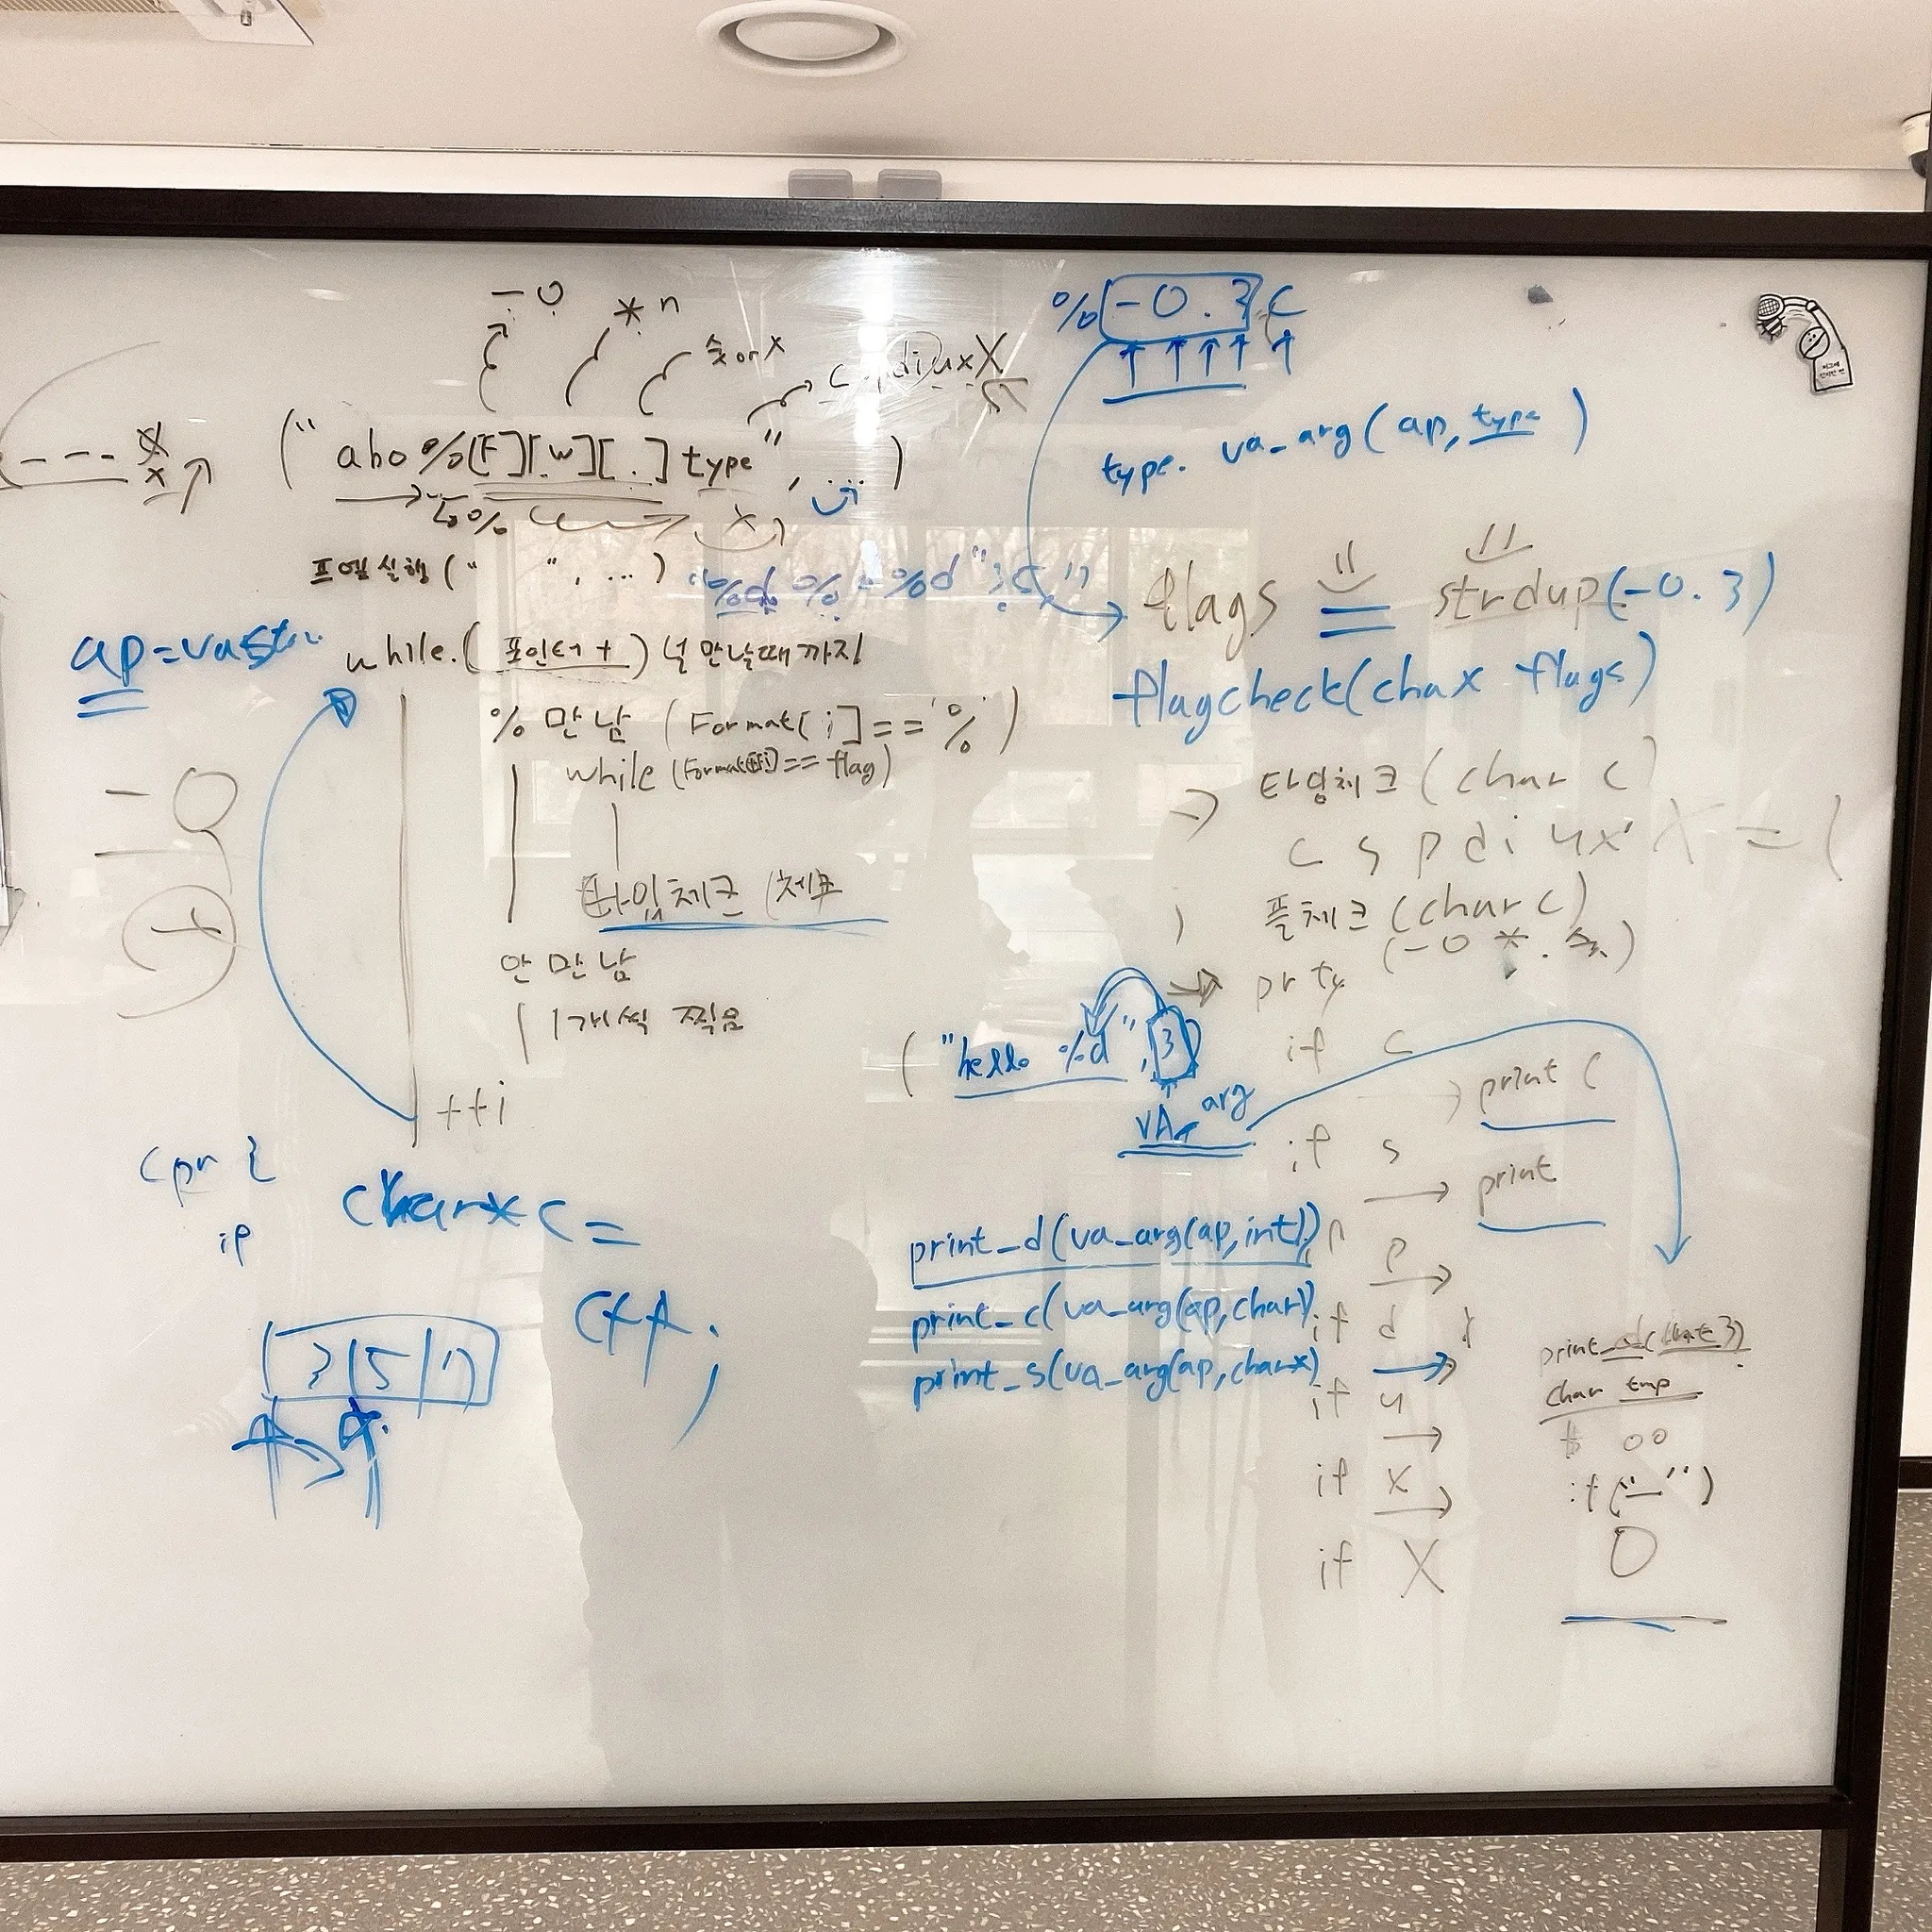 - 0
* n
숫 or x
diuxX
("abo%[F][w][.]type", ...)
%
프엪실행(" ", ...)
while.(포인터 +) 널 만날때 까지
% 만남 (Format[i]=='%')
while (Format[i]== flag)
타입체크
안 만남
1개씩 찍음
++i
- 0
+
%-0.3c
type. va_arg(ap, type)
flags = strdup(-0.3)
flagcheck(char* flags)
타입체크(char c)
c s p d i u x X = (
플체크(char c)
(-0 * .
prty
if c
print c
if s
print
p
if d
if u
if x
if X
("hello %d", 3)
VA_arg
print_d(va_arg(ap, int))
print_c(va_arg(ap, char))
print_s(va_arg(ap, char*)
char tmp
if("-")
0
char* c =
3 5 7